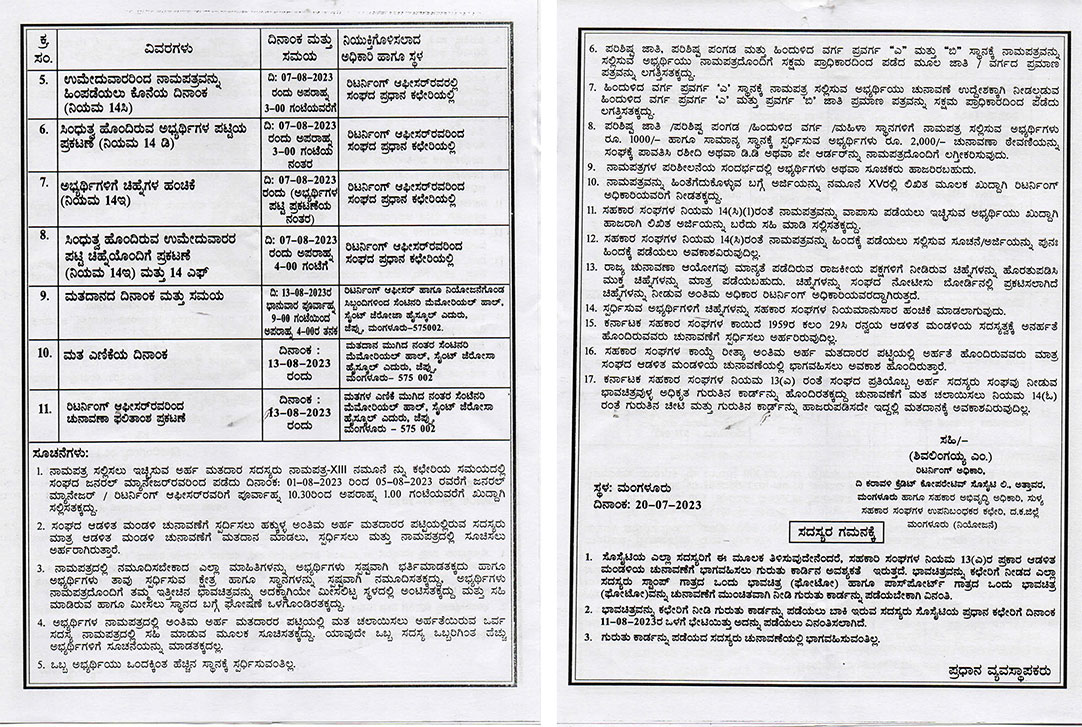 ಕ್ರ. ಸಂ. | ವಿವರಗಳು | ದಿನಾಂಕ ಮತ್ತು ಸಮಯ | ನಿಯುಕ್ತಿಗೊಳಿಸಲಾದ ಅಧಿಕಾರಿ ಹಾಗೂ ಸ್ಥಳ
5. | ಉಮೇದುವಾರರಿಂದ ನಾಮಪತ್ರವನ್ನು ಹಿಂಪಡೆಯಲು ಕೊನೆಯ ದಿನಾಂಕ (ನಿಯಮ 14ಸಿ) | ದಿ: 07-08-2023 ರಂದು ಅಪರಾಹ್ನ 3-00 ಗಂಟೆಯವರೆಗೆ | ರಿಟರ್ನಿಂಗ್ ಆಫೀಸರ್‌ರವರಲ್ಲಿ ಸಂಘದ ಪ್ರಧಾನ ಕಛೇರಿಯಲ್ಲಿ
6. | ಸಿಂಧುತ್ವ ಹೊಂದಿರುವ ಅಭ್ಯರ್ಥಿಗಳ ಪಟ್ಟಿಯ ಪ್ರಕಟಣೆ (ನಿಯಮ 14 ಡಿ) | ದಿ: 07-08-2023 ರಂದು ಅಪರಾಹ್ನ 3-00 ಗಂಟೆಯ ನಂತರ | ರಿಟರ್ನಿಂಗ್ ಆಫೀಸರ್‌ರವರಿಂದ ಸಂಘದ ಪ್ರಧಾನ ಕಛೇರಿಯಲ್ಲಿ
7. | ಅಭ್ಯರ್ಥಿಗಳಿಗೆ ಚಿಹ್ನೆಗಳ ಹಂಚಿಕೆ (ನಿಯಮ 14ಇ) | ದಿ: 07-08-2023 ರಂದು (ಅಭ್ಯರ್ಥಿಗಳ ಪಟ್ಟಿ ಪ್ರಕಟಣೆಯ ನಂತರ) | ರಿಟರ್ನಿಂಗ್ ಆಫೀಸರ್‌ರವರಿಂದ ಸಂಘದ ಪ್ರಧಾನ ಕಛೇರಿಯಲ್ಲಿ
8. | ಸಿಂಧುತ್ವ ಹೊಂದಿರುವ ಉಮೇದುವಾರರ ಪಟ್ಟಿ ಚಿಹ್ನೆಯೊಂದಿಗೆ ಪ್ರಕಟಣೆ (ನಿಯಮ 14ಇ) ಮತ್ತು 14 ಎಫ್ | ದಿ: 07-08-2023 ರಂದು ಅಪರಾಹ್ನ 4-00 ಗಂಟೆಗೆ | ರಿಟರ್ನಿಂಗ್ ಆಫೀಸರ್‌ರವರಿಂದ ಸಂಘದ ಪ್ರಧಾನ ಕಛೇರಿಯಲ್ಲಿ
9. | ಮತದಾನದ ದಿನಾಂಕ ಮತ್ತು ಸಮಯ | ದಿ: 13-08-2023ರ ಭಾನುವಾರ ಪೂರ್ವಾಹ್ನ 9-00 ಗಂಟೆಯಿಂದ ಅಪರಾಹ್ನ 4-00ರ ತನಕ | ರಿಟರ್ನಿಂಗ್ ಆಫೀಸರ್ ಹಾಗೂ ನಿಯೋಜನೆಗೊಂಡ ಸಿಬ್ಬಂದಿಗಳಿಂದ ಸೆಂಟಿನರಿ ಮೆಮೋರಿಯಲ್ ಹಾಲ್, ಸೈಂಟ್ ಜೆರೋಜಾ ಹೈಸ್ಕೂಲ್ ಎದುರು, ಜೆಪ್ಪು, ಮಂಗಳೂರು-575002.
10. | ಮತ ಎಣಿಕೆಯ ದಿನಾಂಕ | ದಿನಾಂಕ : 13-08-2023 ರಂದು | ಮತದಾನ ಮುಗಿದ ನಂತರ ಸೆಂಟಿನರಿ ಮೆಮೋರಿಯಲ್ ಹಾಲ್, ಸೈಂಟ್ ಜೆರೋಸಾ ಹೈಸ್ಕೂಲ್ ಎದುರು, ಜೆಪ್ಪು, ಮಂಗಳೂರು- 575 002
11. | ರಿಟರ್ನಿಂಗ್ ಆಫೀಸರ್‌ರವರಿಂದ ಚುನಾವಣಾ ಫಲಿತಾಂಶ ಪ್ರಕಟಣೆ | ದಿನಾಂಕ : 13-08-2023 ರಂದು | ಮತಗಳ ಎಣಿಕೆ ಮುಗಿದ ನಂತರ ಸೆಂಟಿನರಿ ಮೆಮೋರಿಯಲ್ ಹಾಲ್, ಸೈಂಟ್ ಜೆರೋಸಾ ಹೈಸ್ಕೂಲ್ ಎದುರು, ಜೆಪ್ಪು, ಮಂಗಳೂರು - 575 002
ಸೂಚನೆಗಳು:
1. ನಾಮಪತ್ರ ಸಲ್ಲಿಸಲು ಇಚ್ಛಿಸುವ ಅರ್ಹ ಮತದಾರ ಸದಸ್ಯರು ನಾಮಪತ್ರ-XIII ನಮೂನೆ ನ್ನು ಕಛೇರಿಯ ಸಮಯದಲ್ಲಿ
ಸಂಘದ ಜನರಲ್ ಮ್ಯಾನೇಜರ್‌ರವರಿಂದ ಪಡೆದು ದಿನಾಂಕ: 01-08-2023 ರಿಂದ 05-08-2023 ರವರೆಗೆ ಜನರಲ್
ಮ್ಯಾನೇಜರ್ / ರಿಟರ್ನಿಂಗ್ ಆಫೀಸರ್‌ರವರಿಗೆ ಪೂರ್ವಾಹ್ನ 10.30ರಿಂದ ಅಪರಾಹ್ನ 1.00 ಗಂಟೆಯವರೆಗೆ ಖುದ್ದಾಗಿ
ಸಲ್ಲಿಸತಕ್ಕದ್ದು.
2. ಸಂಘದ ಆಡಳಿತ ಮಂಡಳಿ ಚುನಾವಣೆಗೆ ಸ್ಪರ್ಧಿಸಲು ಹಕ್ಕುಳ್ಳ ಅಂತಿಮ ಅರ್ಹ ಮತದಾರರ ಪಟ್ಟಿಯಲ್ಲಿರುವ ಸದಸ್ಯರು
ಮಾತ್ರ ಆಡಳಿತ ಮಂಡಳಿ ಚುನಾವಣೆಗೆ ಮತದಾನ ಮಾಡಲು, ಸ್ಪರ್ಧಿಸಲು ಮತ್ತು ನಾಮಪತ್ರದಲ್ಲಿ ಸೂಚಿಸಲು
ಅರ್ಹರಾಗಿರುತ್ತಾರೆ.
3. ನಾಮಪತ್ರದಲ್ಲಿ ನಮೂದಿಸಬೇಕಾದ ಎಲ್ಲಾ ಮಾಹಿತಿಗಳನ್ನು ಅಭ್ಯರ್ಥಿಗಳು ಸ್ಪಷ್ಟವಾಗಿ ಭರ್ತಿಮಾಡತಕ್ಕದು ಹಾಗೂ
ಅಭ್ಯರ್ಥಿಗಳು ತಾವು ಸ್ಪರ್ಧಿಸುವ ಕ್ಷೇತ್ರ ಹಾಗೂ ಸ್ಥಾನಗಳನ್ನು ಸ್ಪಷ್ಟವಾಗಿ ನಮೂದಿಸತಕ್ಕದ್ದು, ಅಭ್ಯರ್ಥಿಗಳು
ನಾಮಪತ್ರದೊಂದಿಗೆ ತಮ್ಮ ಇತ್ತೀಚಿನ ಭಾವಚಿತ್ರವನ್ನು ಅದಕ್ಕಾಗಿಯೇ ಮೀಸಲಿಟ್ಟ ಸ್ಥಳದಲ್ಲಿ ಅಂಟಿಸತಕ್ಕದ್ದು ಮತ್ತು ಸಹಿ
ಮಾಡಿರುವ ಹಾಗೂ ಮೀಸಲು ಸ್ಥಾನದ ಬಗ್ಗೆ ಘೋಷಣೆ ಒಳಗೊಂಡಿರತಕ್ಕದ್ದು.
4. ಅಭ್ಯರ್ಥಿಗಳ ನಾಮಪತ್ರದಲ್ಲಿ ಅಂತಿಮ ಅರ್ಹ ಮತದಾರರ ಪಟ್ಟಿಯಲ್ಲಿ ಮತ ಚಲಾಯಿಸಲು ಅರ್ಹತೆಯಿರುವ ಓರ್ವ
ಸದಸ್ಯ ನಾಮಪತ್ರದಲ್ಲಿ ಸಹಿ ಮಾಡುವ ಮೂಲಕ ಸೂಚಿಸತಕ್ಕದ್ದು. ಯಾವುದೇ ಒಬ್ಬ ಸದಸ್ಯ ಒಬ್ಬರಿಗಿಂತ ಹೆಚ್ಚು
ಅಭ್ಯರ್ಥಿಗಳಿಗೆ ಸೂಚನೆಯನ್ನು ಮಾಡತಕ್ಕದ್ದಲ್ಲ.
5. ಒಬ್ಬ ಅಭ್ಯರ್ಥಿಯು ಒಂದಕ್ಕಿಂತ ಹೆಚ್ಚಿನ ಸ್ಥಾನಕ್ಕೆ ಸ್ಪರ್ಧಿಸುವಂತಿಲ್ಲ.
6. ಪರಿಶಿಷ್ಟ ಜಾತಿ, ಪರಿಶಿಷ್ಟ ಪಂಗಡ ಮತ್ತು ಹಿಂದುಳಿದ ವರ್ಗ ಪ್ರವರ್ಗ "ಎ" ಮತ್ತು "ಬಿ" ಸ್ಥಾನಕ್ಕೆ ನಾಮಪತ್ರವನ್ನು
ಸಲ್ಲಿಸುವ ಅಭ್ಯರ್ಥಿಯು ನಾಮಪತ್ರದೊಂದಿಗೆ ಸಕ್ಷಮ ಪ್ರಾಧಿಕಾರದಿಂದ ಪಡೆದ ಮೂಲ ಜಾತಿ / ವರ್ಗದ ಪ್ರಮಾಣ
ಪತ್ರವನ್ನು ಲಗತ್ತಿಸತಕ್ಕದ್ದು.
7. ಹಿಂದುಳಿದ ವರ್ಗ ಪ್ರವರ್ಗ 'ಎ' ಸ್ಥಾನಕ್ಕೆ ನಾಮಪತ್ರ ಸಲ್ಲಿಸುವ ಅಭ್ಯರ್ಥಿಯು ಚುನಾವಣೆ ಉದ್ದೇಶಕ್ಕಾಗಿ ನೀಡಲಡುವ
ಹಿಂದುಳಿದ ವರ್ಗ ಪ್ರವರ್ಗ 'ಎ' ಮತ್ತು ಪ್ರವರ್ಗ 'ಬಿ' ಜಾತಿ ಪ್ರಮಾಣ ಪತ್ರವನ್ನು ಸಕ್ಷಮ ಪ್ರಾಧಿಕಾರದಿಂದ ಪಡೆದು
ಲಗತ್ತಿಸತಕ್ಕದ್ದು.
8. ಪರಿಶಿಷ್ಟ ಜಾತಿ /ಪರಿಶಿಷ್ಟ ಪಂಗಡ /ಹಿಂದುಳಿದ ವರ್ಗ /ಮಹಿಳಾ ಸ್ಥಾನಗಳಿಗೆ ನಾಮಪತ್ರ ಸಲ್ಲಿಸುವ ಅಭ್ಯರ್ಥಿಗಳು
ರೂ. 1000/- ಹಾಗೂ ಸಾಮಾನ್ಯ ಸ್ಥಾನಕ್ಕೆ ಸ್ಪರ್ಧಿಸುವ ಅಭ್ಯರ್ಥಿಗಳು ರೂ. 2,000/- ಚುನಾವಣಾ ಠೇವಣಿಯನ್ನು
ಸಂಘಕ್ಕೆ ಪಾವತಿಸಿ ರಶೀದಿ ಅಥವಾ ಡಿ.ಡಿ ಅಥವಾ ಪೇ ಆರ್ಡರ್‌ನ್ನು ನಾಮಪತ್ರದೊಂದಿಗೆ ಲಗ್ತೀಕರಿಸುವುದು.
9. ನಾಮಪತ್ರಗಳ ಪರಿಶೀಲನೆಯ ಸಂದರ್ಭದಲ್ಲಿ ಅಭ್ಯರ್ಥಿಗಳು ಅಥವಾ ಸೂಚಕರು ಹಾಜರಿರಬಹುದು.
10. ನಾಮಪತ್ರವನ್ನು ಹಿಂತೆಗೆದುಕೊಳ್ಳುವ ಬಗ್ಗೆ ಅರ್ಜಿಯನ್ನು ನಮೂನೆ XVರಲ್ಲಿ ಲಿಖಿತ ಮೂಲಕ ಖುದ್ದಾಗಿ ರಿಟರ್ನಿಂಗ್
ಅಧಿಕಾರಿಯವರಿಗೆ ನೀಡತಕ್ಕದ್ದು.
11. ಸಹಕಾರ ಸಂಘಗಳ ನಿಯಮ 14(ಸಿ)(1)ರಂತೆ ನಾಮಪತ್ರವನ್ನು ವಾಪಾಸು ಪಡೆಯಲು ಇಚ್ಛಿಸುವ ಅಭ್ಯರ್ಥಿಯು ಖುದ್ದಾಗಿ
ಹಾಜರಾಗಿ ಲಿಖಿತ ಅರ್ಜಿಯನ್ನು ಬರೆದು ಸಹಿ ಮಾಡಿ ಸಲ್ಲಿಸತಕ್ಕದ್ದು.
12. ಸಹಕಾರ ಸಂಘಗಳ ನಿಯಮ 14(ಸಿ)ರಂತೆ ನಾಮಪತ್ರವನ್ನು ಹಿಂದಕ್ಕೆ ಪಡೆಯಲು ಸಲ್ಲಿಸುವ ಸೂಚನೆ/ಅರ್ಜಿಯನ್ನು ಪುನಃ
ಹಿಂದಕ್ಕೆ ಪಡೆಯಲು ಅವಕಾಶವಿರುವುದಿಲ್ಲ.
13. ರಾಜ್ಯ ಚುನಾವಣಾ ಆಯೋಗವು ಮಾನ್ಯತೆ ಪಡೆದಿರುವ ರಾಜಕೀಯ ಪಕ್ಷಗಳಿಗೆ ನೀಡಿರುವ ಚಿಹ್ನೆಗಳನ್ನು ಹೊರತುಪಡಿಸಿ
ಮುಕ್ತ ಚಿಹ್ನೆಗಳನ್ನು ಮಾತ್ರ ಪಡೆಯಬಹುದು. ಚಿಹ್ನೆಗಳನ್ನು ಸಂಘದ ನೋಟೀಸು ಬೋರ್ಡಿನಲ್ಲಿ ಪ್ರಕಟಿಸಲಾಗಿದೆ
ಚಿಹ್ನೆಗಳನ್ನು ನೀಡುವ ಅಂತಿಮ ಅಧಿಕಾರ ರಿಟರ್ನಿಂಗ್ ಅಧಿಕಾರಿಯವರದ್ದಾಗಿರುತ್ತದೆ.
14. ಸ್ಪರ್ಧಿಸುವ ಅಭ್ಯರ್ಥಿಗಳಿಗೆ ಚಿಹ್ನೆಗಳನ್ನು ಸಹಕಾರ ಸಂಘಗಳ ನಿಯಮಾನುಸಾರ ಹಂಚಿಕೆ ಮಾಡಲಾಗುವುದು.
15. ಕರ್ನಾಟಕ ಸಹಕಾರ ಸಂಘಗಳ ಕಾಯಿದೆ 1959ರ ಕಲಂ 29ಸಿ ರನ್ವಯ ಆಡಳಿತ ಮಂಡಳಿಯ ಸದಸ್ಯತ್ವಕ್ಕೆ ಅನರ್ಹತೆ
ಹೊಂದಿರುವವರು ಚುನಾವಣೆಗೆ ಸ್ಪರ್ಧಿಸಲು ಅರ್ಹರಿರುವುದಿಲ್ಲ.
16. ಸಹಕಾರ ಸಂಘಗಳ ಕಾಯ್ದೆ ರೀತ್ಯಾ ಅಂತಿಮ ಅರ್ಹ ಮತದಾರರ ಪಟ್ಟಿಯಲ್ಲಿ ಅರ್ಹತೆ ಹೊಂದಿರುವವರು ಮಾತ್ರ
ಸಂಘದ ಆಡಳಿತ ಮಂಡಳಿಯ ಚುನಾವಣೆಯಲ್ಲಿ ಭಾಗವಹಿಸಲು ಅವಕಾಶ ಹೊಂದಿರುತ್ತಾರೆ.
17. ಕರ್ನಾಟಕ ಸಹಕಾರ ಸಂಘಗಳ ನಿಯಮ 13(ಎ) ರಂತೆ ಸಂಘದ ಪ್ರತಿಯೊಬ್ಬ ಅರ್ಹ ಸದಸ್ಯರು ಸಂಘವು ನೀಡುವ
ಭಾವಚಿತ್ರವುಳ್ಳ ಅಧಿಕೃತ ಗುರುತಿನ ಕಾರ್ಡ್‌ನ್ನು ಹೊಂದಿರತಕ್ಕದ್ದು ಚುನಾವಣೆಗೆ ಮತ ಚಲಾಯಿಸಲು ನಿಯಮ 14(ಓ)
ರಂತೆ ಗುರುತಿನ ಚೀಟಿ ಮತ್ತು ಗುರುತಿನ ಕಾರ್ಡ್‌ನ್ನು ಹಾಜರುಪಡಿಸದೇ ಇದ್ದಲ್ಲಿ ಮತದಾನಕ್ಕೆ ಅವಕಾಶವಿರುವುದಿಲ್ಲ.
ಸಹಿ/-
(ಶಿವಲಿಂಗಯ್ಯ ಎಂ.)
ರಿಟರ್ನಿಂಗ್ ಅಧಿಕಾರಿ,
ದಿ ಕರಾವಳಿ ಕ್ರೆಡಿಟ್ ಕೋಪರೇಟಿವ್ ಸೊಸೈಟಿ ಲಿ., ಅತ್ತಾವರ,
ಮಂಗಳೂರು ಹಾಗೂ ಸಹಕಾರ ಅಭಿವೃದ್ಧಿ ಅಧಿಕಾರಿ, ಸುಳ್ಯ
ಸಹಕಾರ ಸಂಘಗಳ ಉಪನಿಬಂಧಕರ ಕಛೇರಿ, ದ.ಕ.ಜಿಲ್ಲೆ
ಮಂಗಳೂರು (ನಿಯೋಜನೆ)
ಸ್ಥಳ: ಮಂಗಳೂರು
ದಿನಾಂಕ: 20-07-2023
ಸದಸ್ಯರ ಗಮನಕ್ಕೆ
1. ಸೊಸೈಟಿಯ ಎಲ್ಲಾ ಸದಸ್ಯರಿಗೆ ಈ ಮೂಲಕ ತಿಳಿಸುವುದೇನೆಂದರೆ, ಸಹಕಾರಿ ಸಂಘಗಳ ನಿಯಮ 13(ಎ)ರ ಪ್ರಕಾರ ಆಡಳಿತ
ಮಂಡಳಿಯ ಚುನಾವಣೆಗೆ ಭಾಗವಹಿಸಲು ಗುರುತು ಕಾರ್ಡಿನ ಅವಶ್ಯಕತೆ ಇರುತ್ತದೆ. ಭಾವಚಿತ್ರವನ್ನು ಕಛೇರಿಗೆ ನೀಡದ ಎಲ್ಲಾ
ಸದಸ್ಯರು ಸ್ಟಾಂಪ್ ಗಾತ್ರದ ಒಂದು ಭಾವಚಿತ್ರ (ಫೋಟೋ) ಹಾಗೂ ಪಾಸ್‌ಪೋರ್ಟ್ ಗಾತ್ರದ ಒಂದು ಭಾವಚಿತ್ರ
(ಫೋಟೋ)ವನ್ನು ಚುನಾವಣೆಗೆ ಮುಂಚಿತವಾಗಿ ನೀಡಿ ಗುರುತು ಕಾರ್ಡನ್ನು ಪಡೆಯಬೇಕಾಗಿ ವಿನಂತಿ.
2. ಭಾವಚಿತ್ರವನ್ನು ಕಛೇರಿಗೆ ನೀಡಿ ಗುರುತು ಕಾರ್ಡನ್ನು ಪಡೆಯಲು ಬಾಕಿ ಇರುವ ಸದಸ್ಯರು ಸೊಸೈಟಿಯ ಪ್ರಧಾನ ಕಛೇರಿಗೆ ದಿನಾಂಕ
11-08-2023ರ ಒಳಗೆ ಭೇಟಿಯಿತ್ತು ಅದನ್ನು ಪಡೆಯಲು ವಿನಂತಿಸಲಾಗಿದೆ.
3. ಗುರುತು ಕಾರ್ಡನ್ನು ಪಡೆಯದ ಸದಸ್ಯರು ಚುನಾವಣೆಯಲ್ಲಿ ಭಾಗವಹಿಸುವಂತಿಲ್ಲ.
ಪ್ರಧಾನ ವ್ಯವಸ್ಥಾಪಕರು